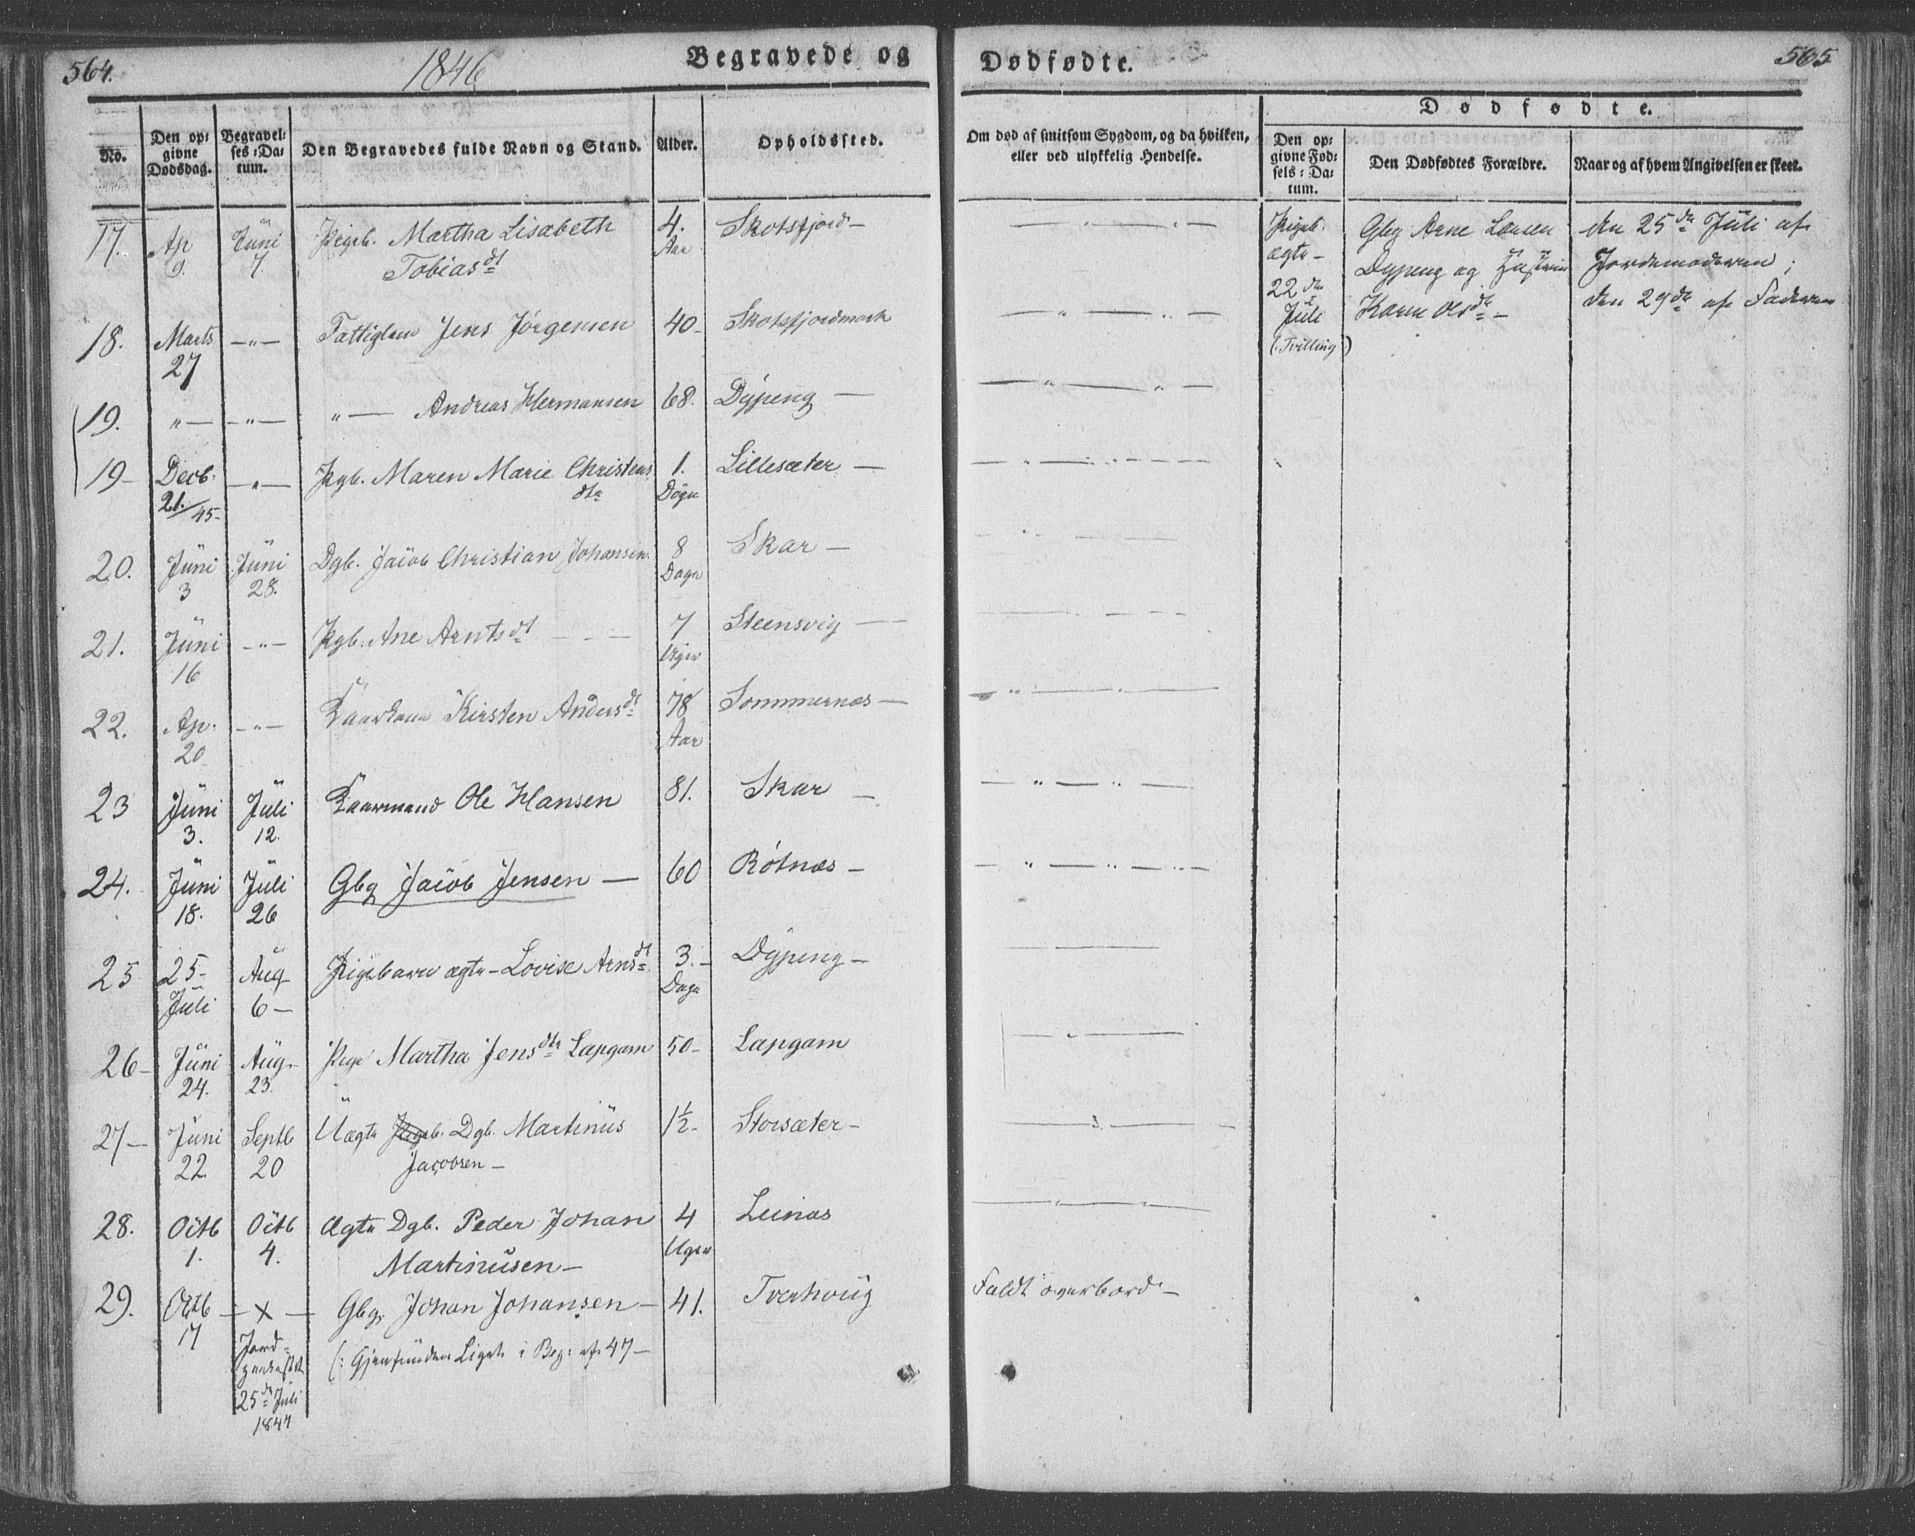 564.
1846
Begravede og
No.
Den op-
givne
Dødsdag.
Begravel-
ses-Da-
tum.
Den Begravedes fulde Navn og Stand.
Alder.
Opholdssted.
17. Ap 9. Juni 7. Pigeb. Martha Lisabeth 4. Aar Skotsfjord —
Tobiasdt
18. Marts 27 —"— Fattiglem Jens Jørgensen 40- Skotsfjordmark
19. "— —"— "— Andreas Hermansen 68. Dypeng —
19- Decb. 21./45- —"— Pgb. Maren Marie Christens 1. Døgn Lillesæter —
dtr
20. Juni 3 Juni 28. Dgb. Jacob Christian Johansen. 8 Dage Skar —
21. Juni 16 —"— Pgb. Ane Arntsdt — — — 7 Uger Steensvig —
22. Ap. 20 —"— Kaarkone Kirsten Andersdt 78 Aar Sommernæs —
23 Juni 3. Juli 12. Kaarmand Ole Hansen 81. Skar —
24. Juni 18. Juli 26 Gbg Jacob Jensen — 60 Rötnæs —
25 25- Juli Aug 6— Pigebarn ægte — Lovise Arnsdt 3.- Dage Dypeng —
26- Juni 24. Aug. 23. Pige Martha Jensdtr Lapgam 50- Lapgam
27— Juni 22. Septb 20 Uægte Pigeb. Dgb. Martinus 1½- Storsæter —
Jacobsen —
28. Octb 1. Octb 4. Ægte Dgb. Peder Johan 4 Uger Leinæs
Martinusen —
29. Octb 17 — x — Gbgr Johan Johansen — 41. Tverhoug
Jord-
25de Juli
1847
(: Gjenfunden Liget i Beg. af 47 —
565
Dødfødte.
Om død af smitsom Sygdom, og da hvilken,
eller ved ulykkelig Hendelse.
Dødfødte.
Den op-
givne Fød-
sels-Da-
tum.
Den Dødfødtes Forældre.
Naar og af hvem Angivelsen er skeet.
Pigeb.
ægte —
22de
Juli
(: Tvilling)
Gbg Arne Larsen
Dypeng og Hustrue
Karen Olsdtr —
den 25de Juli af
Jordemoderen ;
den 29de af Faderen
Faldt overbord —